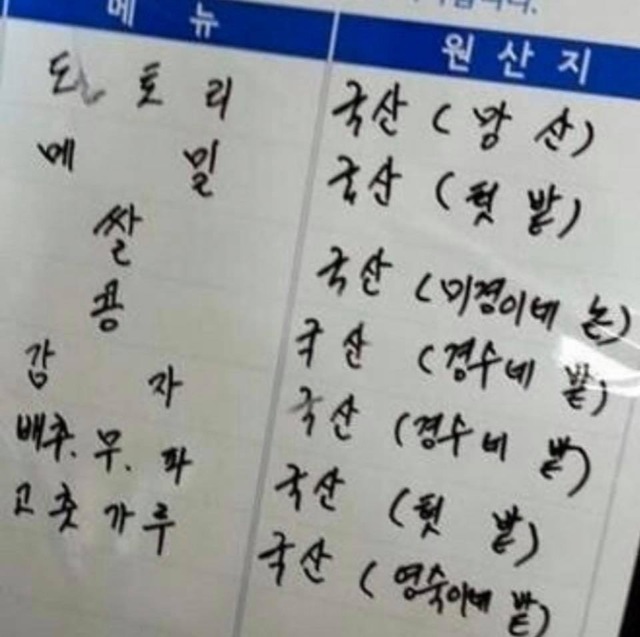 메뉴 원산지
도토리 국산 (망산)
메밀 국산 (텃밭)
쌀 국산 (미경이네 논)
콩 국산 (경수네 밭)
감자 국산 (경수네 밭)
배추. 무. 파 국산 (텃밭)
고춧가루 국산 (영숙이네 밭)